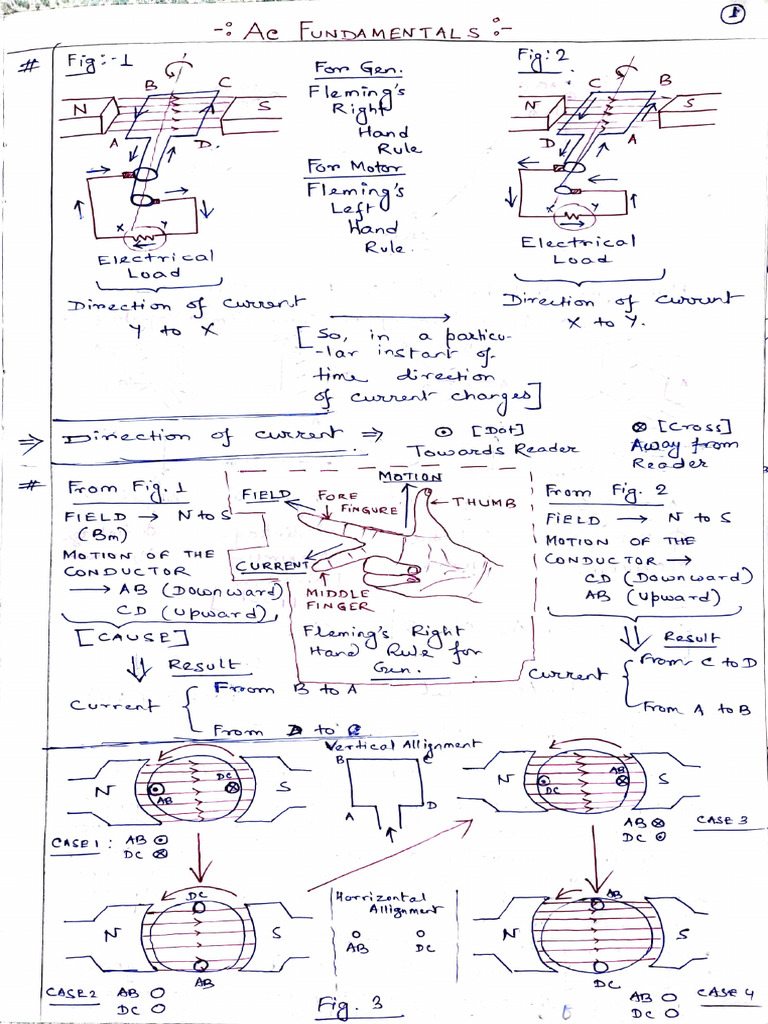 1
-: AC FUNDAMENTALS :-
#
Fig:-1
B
C
N
S
A
D.
X
Y
Electrical
Load
Direction of current
Y to X
For Gen.
Fleming's
Right
Hand
Rule
For Motor
Fleming's
Left
Hand
Rule.
Fig: 2
C
B
N
S
D
A
X
Y
Electrical
Load
Direction of current
X to Y.
[So, in a particu-
-lar instant of
time direction
of current changes]
⇒ Direction of current ⇒ ⊙ [Dot] ⊗ [Cross]
Towards Reader Away from
Reader
#
From Fig. 1
FIELD → N to S
(Bm)
MOTION OF THE
CONDUCTOR
→ AB (Downward)
CD (Upward)
[CAUSE]
⇓ Result
Current { Froom B to A
From D to C
MOTION
FIELD
FORE
FINGURE
THUMB
CURRENT
MIDDLE
FINGER
Fleming's Right
Hand Rule for
Gen.
From Fig. 2
FIELD → N to S
MOTION OF THE
CONDUCTOR →
CD (Downward)
AB (Upward)
⇓ Result
Current { From C to D
From A to B
N
AB
DC
S
CASE 1 : AB ⊙
DC ⊗
Vertical Allignment
B
C
A
D
N
DC
AB
S
AB ⊗
DC ⊙
CASE 3
DC
N
S
AB
CASE 2 AB O
DC O
Horrizontal
Allignment
O O
AB DC
Fig. 3
AB
N
S
DC
AB O
DC O
CASE 4